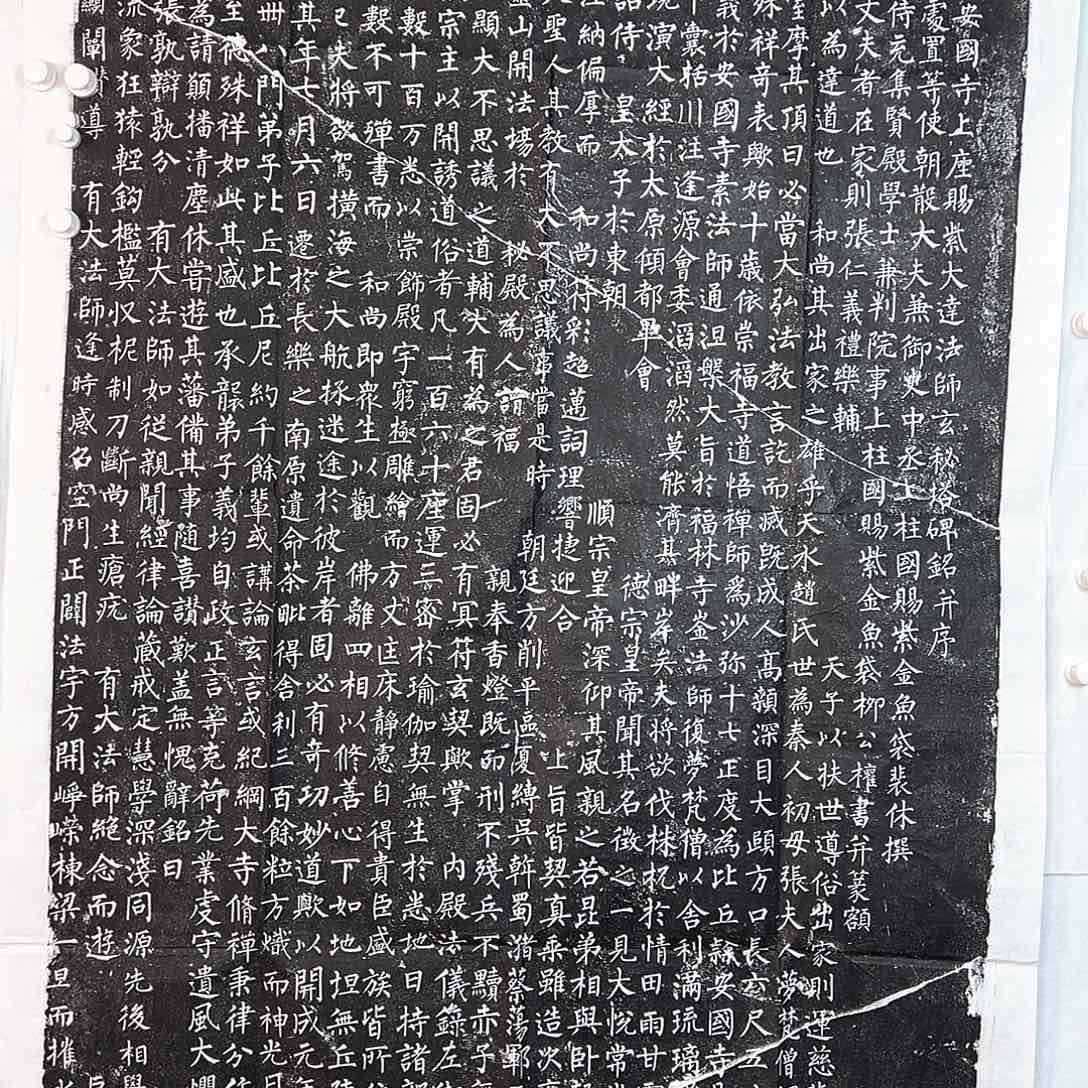 安國寺上座賜紫大達法師玄秘塔碑銘并序
處置等使朝散大夫兼御史中丞上柱國賜紫金魚袋裴休撰
侍充集賢殿學士兼判院事上柱國賜紫金魚袋柳公權書并篆額
丈夫者在家則張仁義禮樂輔 天子以扶世導俗出家則運慈
以為達道也 和尚其出家之雄乎天水趙氏世為秦人初母張夫人夢梵僧
摩其頂曰必當大弘法教言訖而滅既成人高顙深目大頤方口長六尺五
殊祥奇表歟始十歲依崇福寺道悟禪師為沙弥十七正度為比丘隸安國寺
義於安國寺素法師通涅槃大旨於福林寺崟法師復夢梵僧以舍利滿琉璃
囊括川注逢源會委滔滔然莫能濟其畔岸矣夫將欲伐株杌於情田雨甘
現演大經於太原傾都畢會 德宗皇帝聞其名徵之一見大悅常
詔侍 皇太子於東朝 順宗皇帝深仰其風親之若昆弟相與卧
納偏厚而 和尚符彩超邁詞理響捷迎合 上旨皆契真乘雖造次
大聖人其教有大不思議事當是時 朝廷方削平區夏縛吳斡蜀潴蔡蕩鄆
靈山開法場於 秘殿為人請福 親奉香燈既而刑不殘兵不黷赤子
顯大不思議之道輔大有為之君固必有冥符玄契歟掌 內殿法儀錄左
宗主以開誘道俗者凡一百六十座運三密於瑜伽契無生於悉地日持諸
數十百万悉以崇飾殿宇窮極雕繪而方丈匡床靜慮自得貴臣盛族皆所
數不可殫書而 和尚即眾生以觀佛離四相以修善心下如地坦無丘
已夫將欲駕橫海之大航拯迷途於彼岸者固必有奇功妙道歟以開成元
其年七月六日遷於長樂之南原遺命茶毗得舍利三百餘粒方熾而神光
卌八門弟子比丘比丘尼約千餘輩或講論玄言或紀綱大寺脩禪秉律分
至德殊祥如此其盛也承襲弟子義均自政正言等克荷先業虔守遺風大懼
為請願播清塵休嘗遊其藩備其事隨喜讚歎蓋無愧辭銘曰
張孰辯孰分 有大法師如從親聞經律論藏戒定慧學深淺同源先後相覺
流象狂猿輕鈎檻莫收柅制刀斷尚生瘡疣 有大法師絕念而遊
闡讚導 有大法師逢時感召空門正闢法宇方開崢嶸棟梁一旦而摧